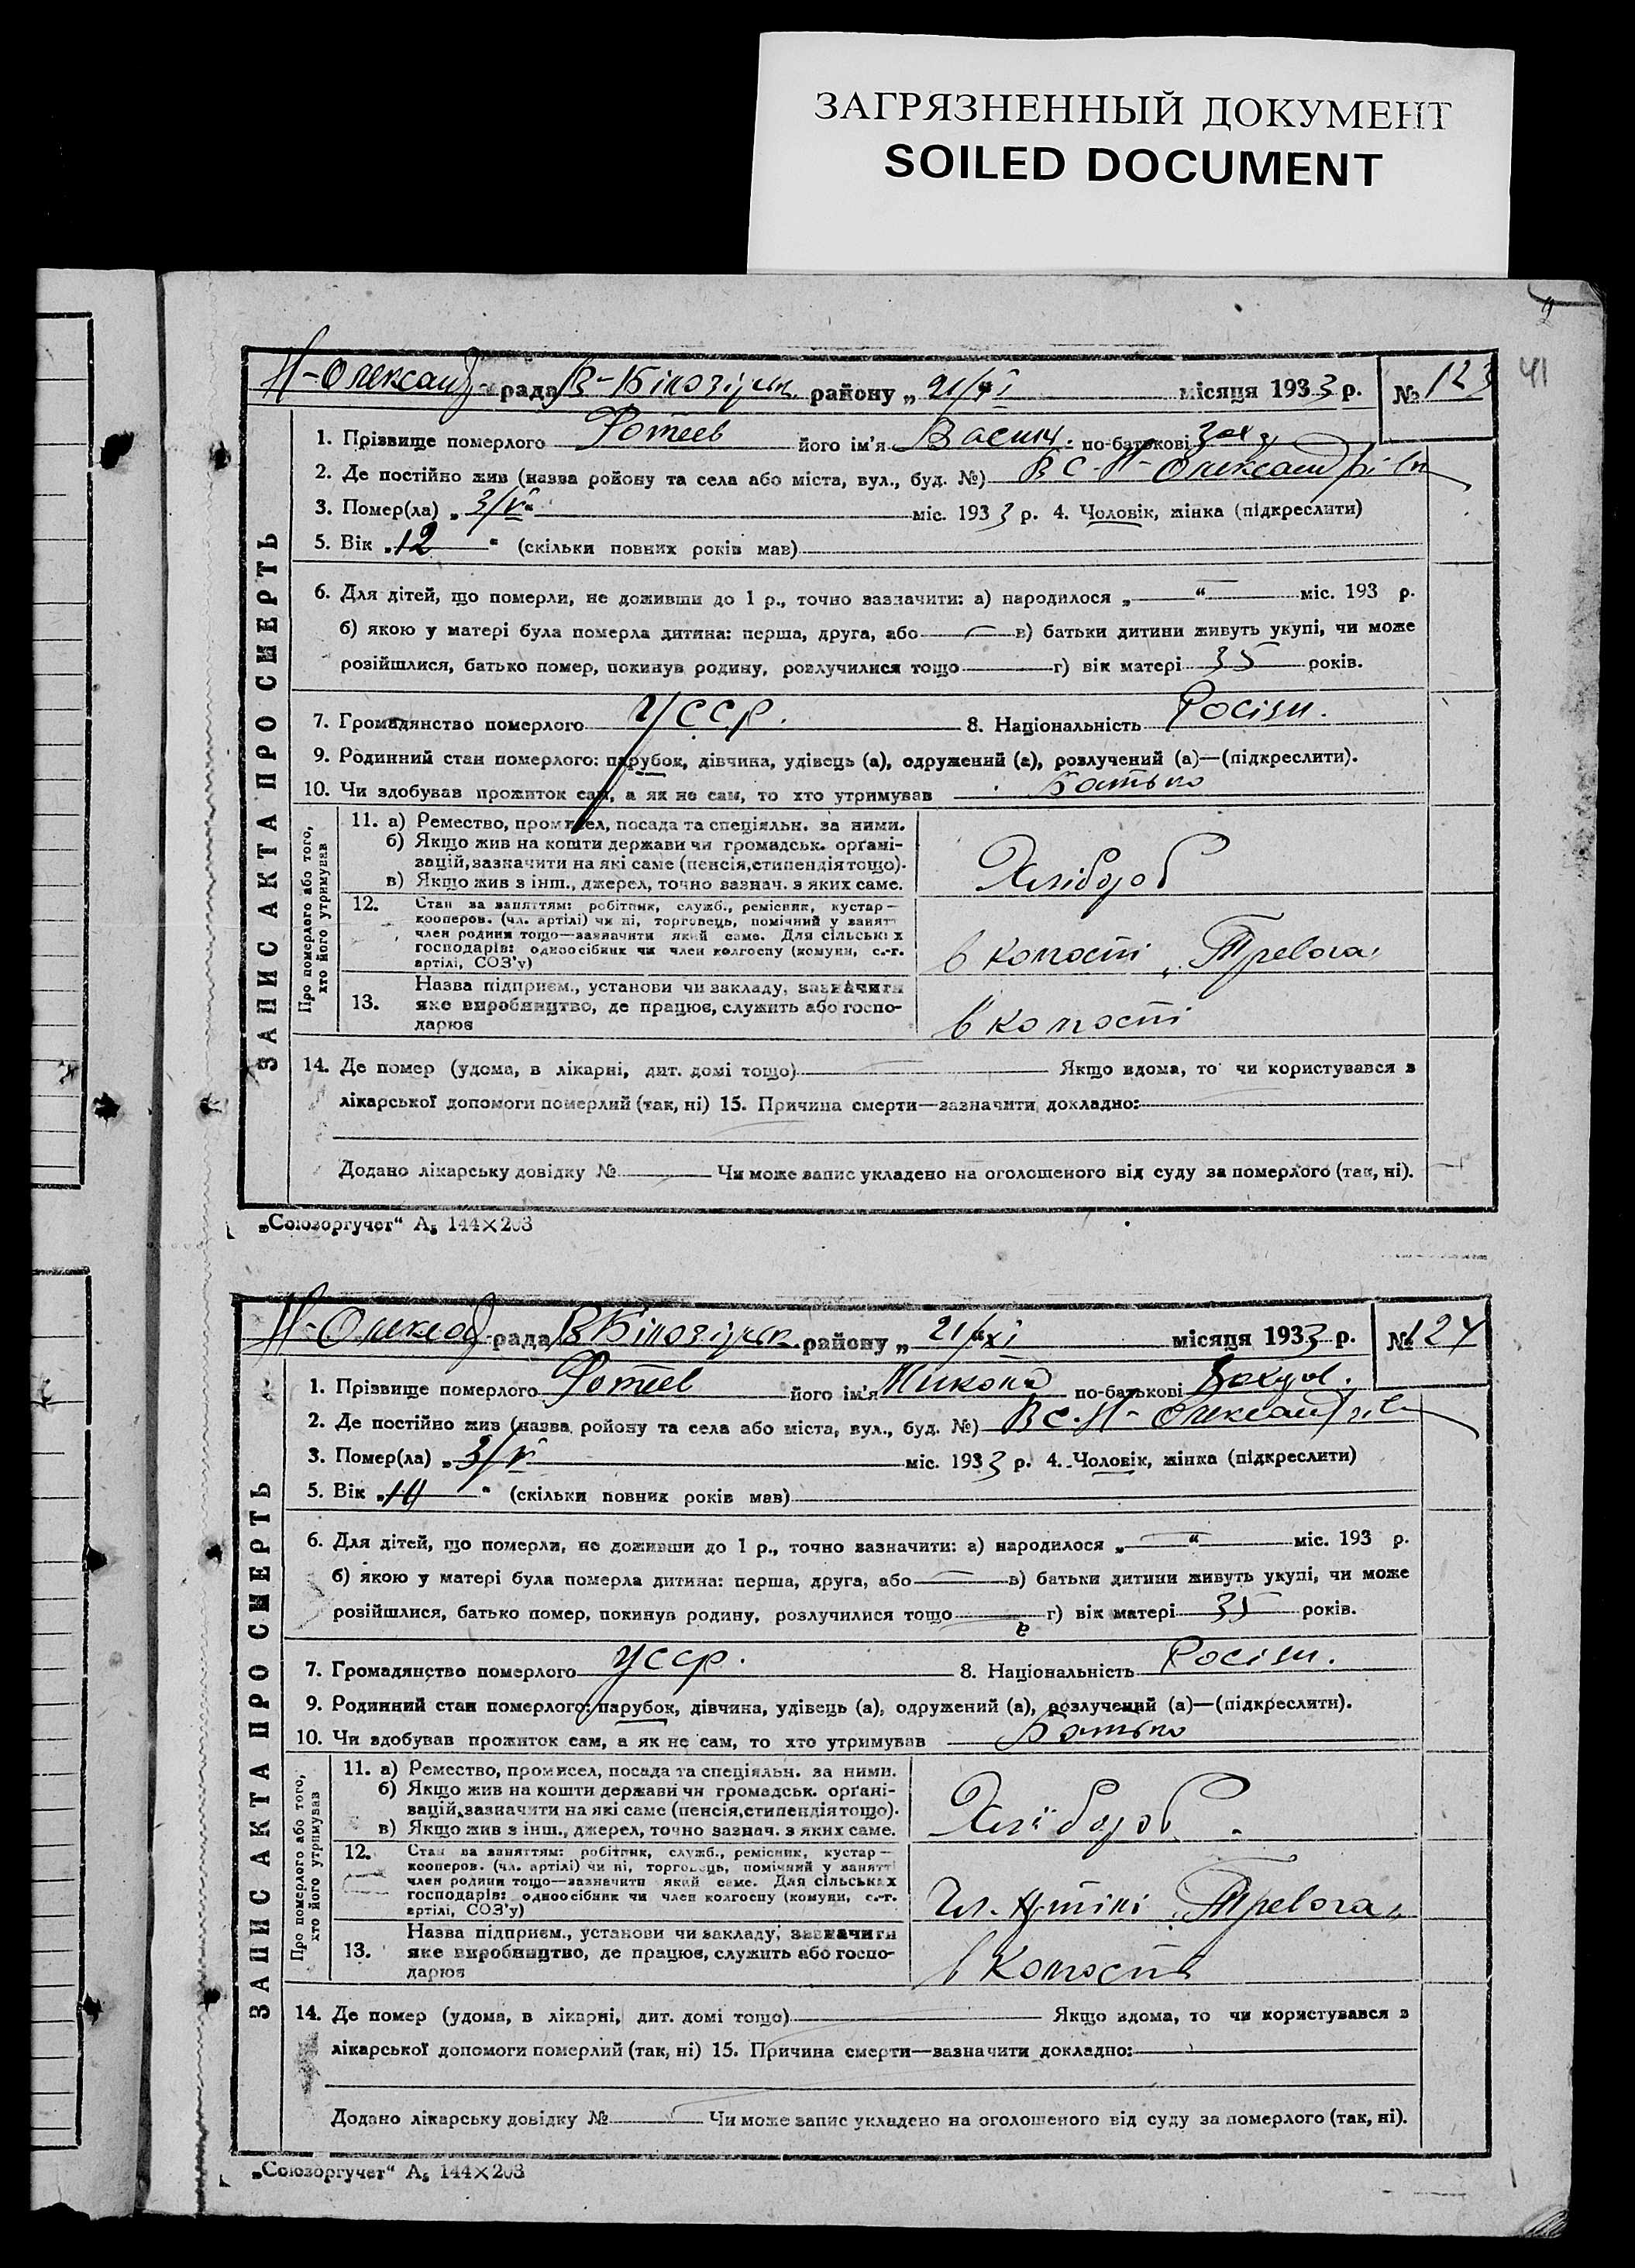 ЗАГРЯЗНЕННЫЙ ДОКУМЕНТ
SOILED DOCUMENT
41
Н-Олександ рада В-Білозірськ. району „ 21/XI місяця 1933 р. № 123
ЗАПИС АКТА ПРО СМЕРТЬ
1. Прізвище померлого Фотеев його ім'я Васил. по-батькові Заху
2. Де постійно жив (назва ройону та села або міста, вул., буд. №) В с. Н-Олександрівц
3. Помер(ла) „ 3/V“ міс. 1933 р. 4. Чоловік, жінка (підкреслити)
5. Вік „12“ (скільки повних років мав)
6. Для дітей, що померли, не доживши до 1 р., точно зазначити: а) народилося „ — “ міс. 193 р.
б) якою у матері була померла дитина: перша, друга, або — в) батьки дитини живуть укупі, чи може
розійшлися, батько помер, покинув родину, розлучилися тощо — г) вік матері 35 років.
7. Громадянство померлого УССР. 8. Національність Росіян.
9. Родинний стан померлого: парубок, дівчина, удівець (а), одружений (а), розлучений (а)—(підкреслити).
10. Чи здобував прожиток сам, а як не сам, то хто утримував Батько
Про померлого або того, хто його утримував
11. а) Ремество, промисел, посада та спеціяльн. за ними.
б) Якщо жив на кошти держави чи громадськ. орґані-
зацій, зазначити на які саме (пенсія, стипендія тощо).
в) Якщо жив з інш., джерел, точно зазнач. з яких саме.
Хлібороб
12. Стан за заняттям: робітник, служб., ремісник, кустар—
кооперов. (чл. артілі) чи ні, торговець, помічний у занятт
член родини тощо—зазначити який саме. Для сільських
господарів: одноосібник чи член колгоспу (комуни, с.-г.
артілі, СОЗ'у)
в колгоспі „Тревога“
13. Назва підприєм., установи чи закладу, зазначити
яке виробництво, де працює, служить або госпо-
дарює
в колгоспі
14. Де помер (удома, в лікарні, дит. домі тощо) — Якщо вдома, то чи користувався з
лікарської допомоги померлий (так, ні) 15. Причина смерти—зазначити докладно:
Додано лікарську довідку № — Чи може запис укладено на оголошеного від суду за померлого (так, ні).
„Союзоргучет“ А₅ 144×203
Н-Олександ рада В Білозірськ. району „ 21/XI місяця 1933 р. № 124
ЗАПИС АКТА ПРО СМЕРТЬ
1. Прізвище померлого Фотеев його ім'я Никола по-батькові Захаров.
2. Де постійно жив (назва ройону та села або міста, вул., буд. №) В с. Н-Олександрівц
3. Помер(ла) „ 3/V міс. 1933 р. 4. Чоловік, жінка (підкреслити)
5. Вік „10“ (скільки повних років мав)
6. Для дітей, що померли, не доживши до 1 р., точно зазначити: а) народилося „ — “ міс. 193 р.
б) якою у матері була померла дитина: перша, друга, або — в) батьки дитини живуть укупі, чи може
розійшлися, батько помер, покинув родину, розлучилися тощо — г) вік матері 35 років.
7. Громадянство померлого УССР. 8. Національність Росіян.
9. Родинний стан померлого: парубок, дівчина, удівець (а), одружений (а), розлучений (а)—(підкреслити).
10. Чи здобував прожиток сам, а як не сам, то хто утримував Батько
Про померлого або того, хто його утримував
11. а) Ремество, промисел, посада та спеціяльн. за ними.
б) Якщо жив на кошти держави чи громадськ. орґані-
зацій, зазначити на які саме (пенсія, стипендія тощо).
в) Якщо жив з інш., джерел, точно зазнач. з яких саме.
Хлібороб.
12. Стан за заняттям: робітник, служб., ремісник, кустар—
кооперов. (чл. артілі) чи ні, торговець, помічний у занятті
член родини тощо—зазначити який саме. Для сільських
господарів: одноосібник чи член колгоспу (комуни, с.-г.
артілі, СОЗ'у)
Чл. Артілі „Тревога“
13. Назва підприєм., установи чи закладу, зазначити
яке виробництво, де працює, служить або госпо-
дарює
в колгоспі
14. Де помер (удома, в лікарні, дит. домі тощо) — Якщо вдома, то чи користувався з
лікарської допомоги померлий (так, ні) 15. Причина смерти—зазначити докладно:
Додано лікарську довідку № — Чи може запис укладено на оголошеного від суду за померлого (так, ні).
„Союзоргучет“ А₅ 144×203